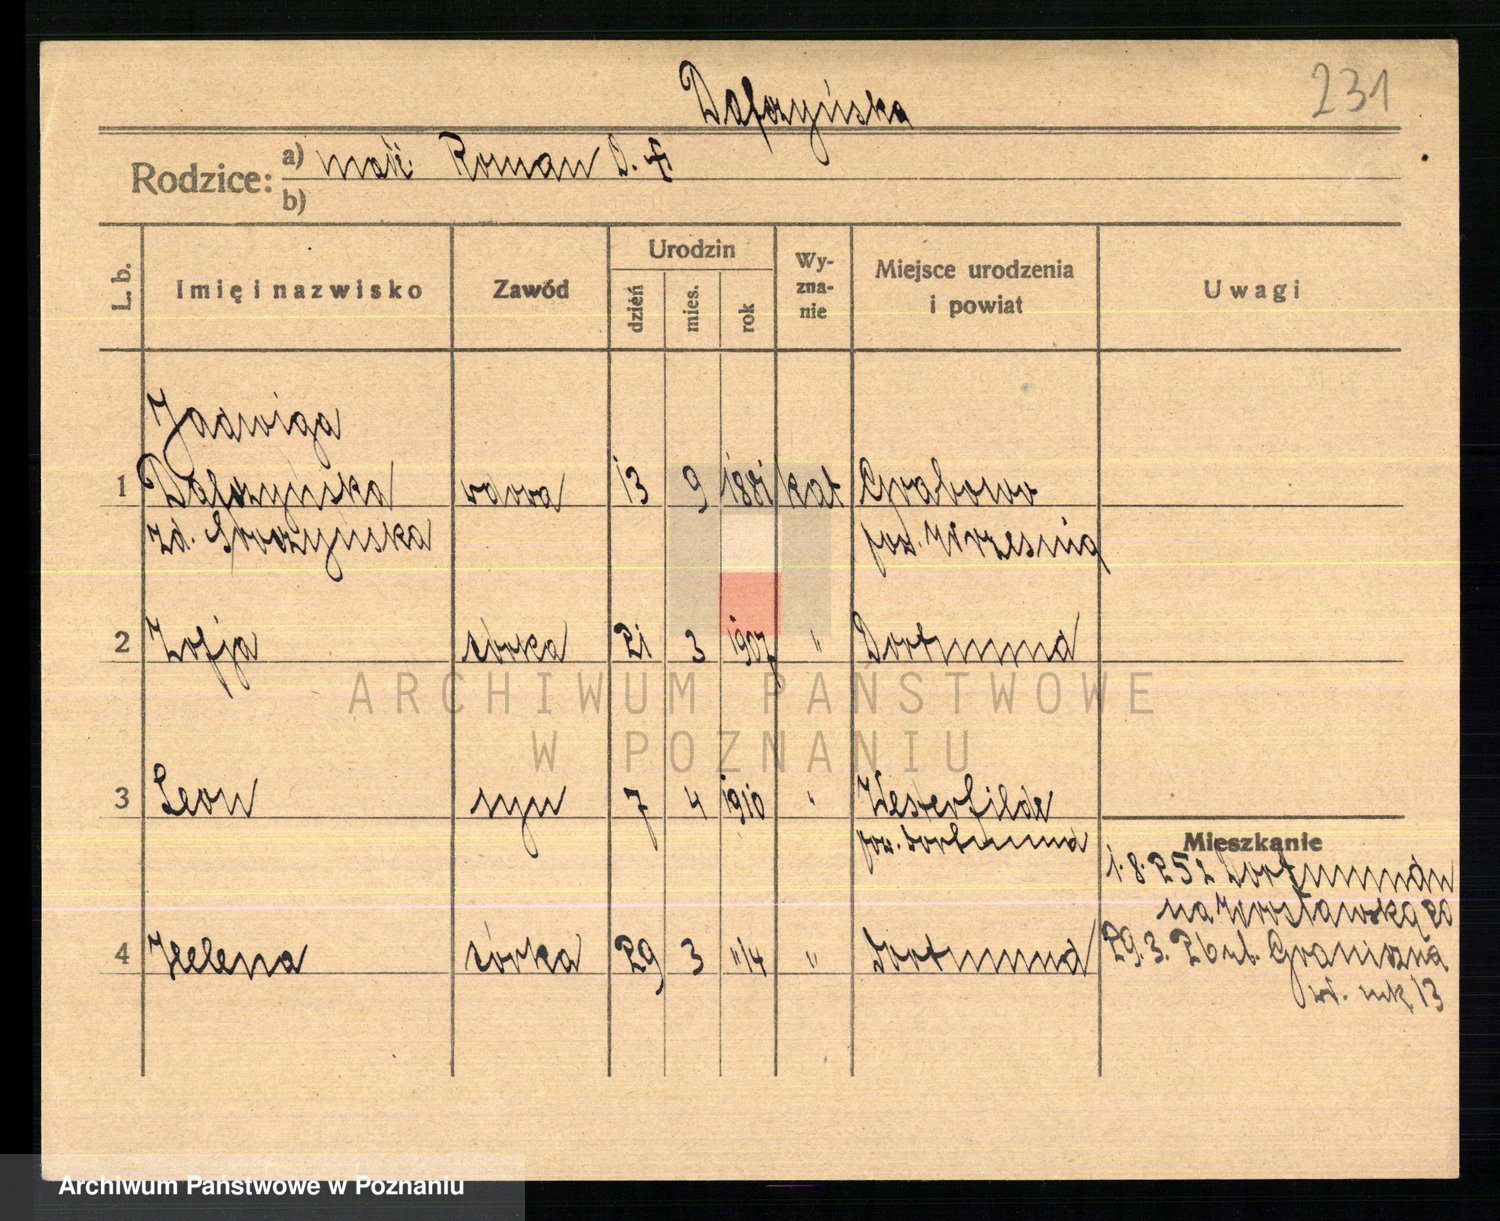 231
Rodzice:
a)
Roman D. †
b)
L. b.
Imię i nazwisko
Zawód
Urodzin
dzień
mies.
rok
Wy-
zna-
nie
Miejsce urodzenia
i powiat
Uwagi
Jadwiga
1 wdowa 13 9 1881 kat Grabowo
zd.
pow. Września
2 Zofja córka 21 3 1907 " Dortmund
ARCHIWUM PAŃSTWOWE
W POZNANIU
3 Leon syn 7 4 1910 " Westerfilde
pow. Dortmund
Mieszkanie
1.8.25 z Dortmundu
na Wrocławską 20
4 Helena córka 29 3 "14 " Dortmund
29.3.26 ul. Graniczna
13
Archiwum Państwowe w Poznaniu